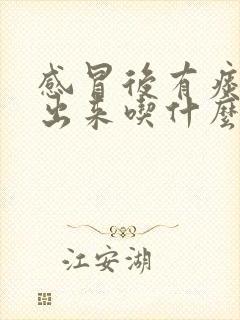 感冒後有痰
出来喫什麼
江安湖